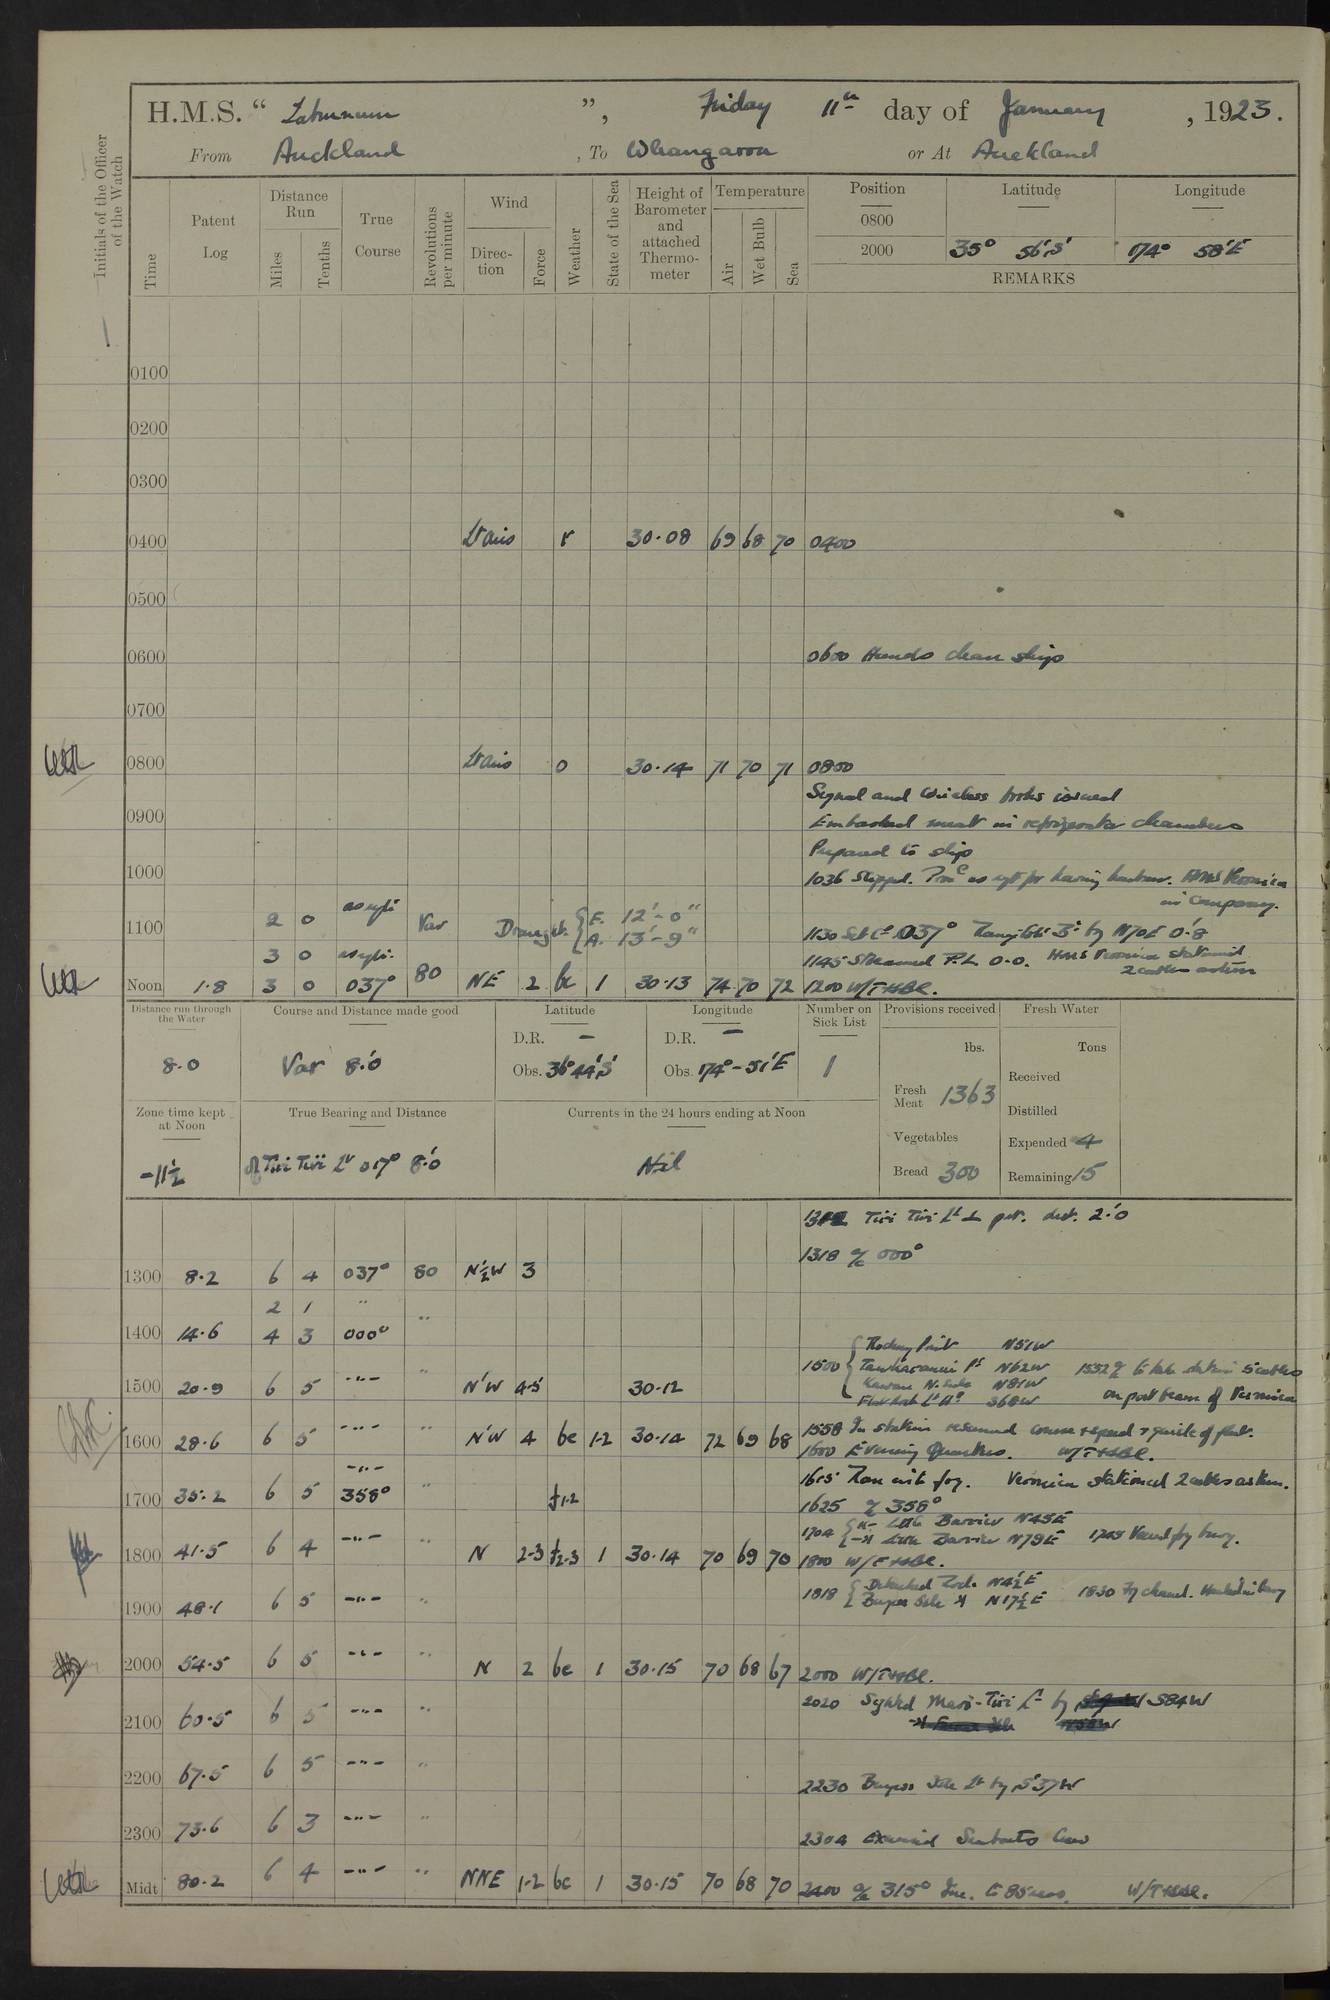 H.M.S. " Laburnum ", Friday 11th day of January, 1923.
From Auckland, To Whangaroa or At Auckland
Initials of the Officer of the Watch
Time
Patent Log
Distance Run
Miles
Tenths
True Course
Revolutions per minute
Wind
Direction
Force
Weather
State of the Sea
Height of Barometer and attached Thermometer
Temperature
Air
Wet Bulb
Sea
Position Latitude Longitude
0800
2000 35° 56'S 174° 58'E
REMARKS
0100
0200
0300
0400 Lt airs r 30.08 69 68 70 0400
0500
0600 0600 Hands clean ship
0700
0800 Lt airs o 30.14 71 70 71 0800
Signal and Wireless books issued
0900 Embarked meat in refrigerator chambers
Prepared to slip
1000 1036 Slipped. Procd as reqt for leaving harbour. HMS Veronica
in Company.
1100 2 0 as reqte Var Draught. { F. 12'-0"
A. 13'-9"
1130 Set Co 037° by N70E 0.'8
3 0 as reqte. 1145 Streamed P.L. 0.0. HMS Veronica stationed
2 cables astern
Noon 1.8 3 0 037° 80 NE 2 bc 1 30.13 74 70 72 1200 W/T
Distance run through the Water
8.0
Course and Distance made good
Var 8.'0
Latitude
D.R. –
Obs. 36° 44'S
Longitude
D.R. –
Obs. 174° - 51'E
Number on Sick List
1
Provisions received
lbs.
Fresh Meat 1363
Vegetables
Bread 300
Fresh Water
Tons
Received
Distilled
Expended 4
Remaining 15
Zone time kept at Noon
-11½
True Bearing and Distance
Tiri Tiri Lt 017° 8.'0
Currents in the 24 hours ending at Noon
Nil
Tiri Tiri Lt port. dist. 2.'0
1318 a/c 000°
1300 8.2 6 4 037° 80 N½W 3
2 1 " "
1400 14.6 4 3 000°
1500 { N51W
Tawharanui Pt N62W 1552 a/c to take station 5 cables
Kawau N. N81W on port beam of Veronica
Flat Rock Lt Ho S68W
1500 20.9 6 5 -"- " N'W 4-5 30.12
1558 In station resumed course & speed & guide of fleet.
1600 28.6 6 5 -"- " N'W 4 bc 1-2 30.14 72 69 68 1600 Evening Quarters. W/T
-"- 1615 Ran into fog. Veronica stationed 2 cables astern.
1700 35.2 6 5 358° " f1-2 1625 a/c 358°
1704 { Little Barrier N45E
Little Barrier N79E 1705 Veered fog buoy.
1800 41.5 6 4 -"- N 2-3 f2-3 1 30.14 70 69 70 1800 W/T
1818 { N4½E 1830 Fog cleared. Hauled in buoy
N17½E
1900 48.1 6 5 -"- "
2000 54.5 6 5 -"- " N 2 bc 1 30.15 70 68 67 2000 W/T
2020 Sighted Moro-Tiri Lt by S84W
2100 60.5 6 5 -"- "
2200 67.5 6 5 -"- " 2230 Burgess Isle Lt by S37W
2300 73.6 6 3 -"- " 2304 Exercised Seaboats Crew
Midt 80.2 6 4 -"- " NNE 1-2 bc 1 30.15 70 68 70 2400 a/c 315° Inc. to 85 revs. W/T